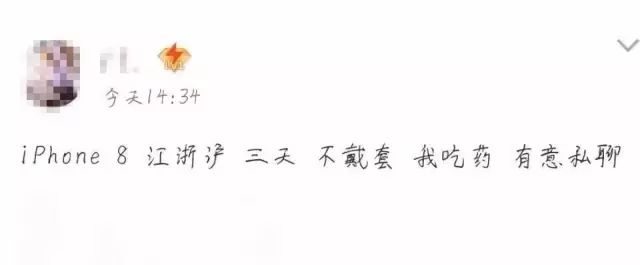 LV1
今天14:34
iPhone 8 江浙沪 三天 不戴套 我吃药 有意私聊